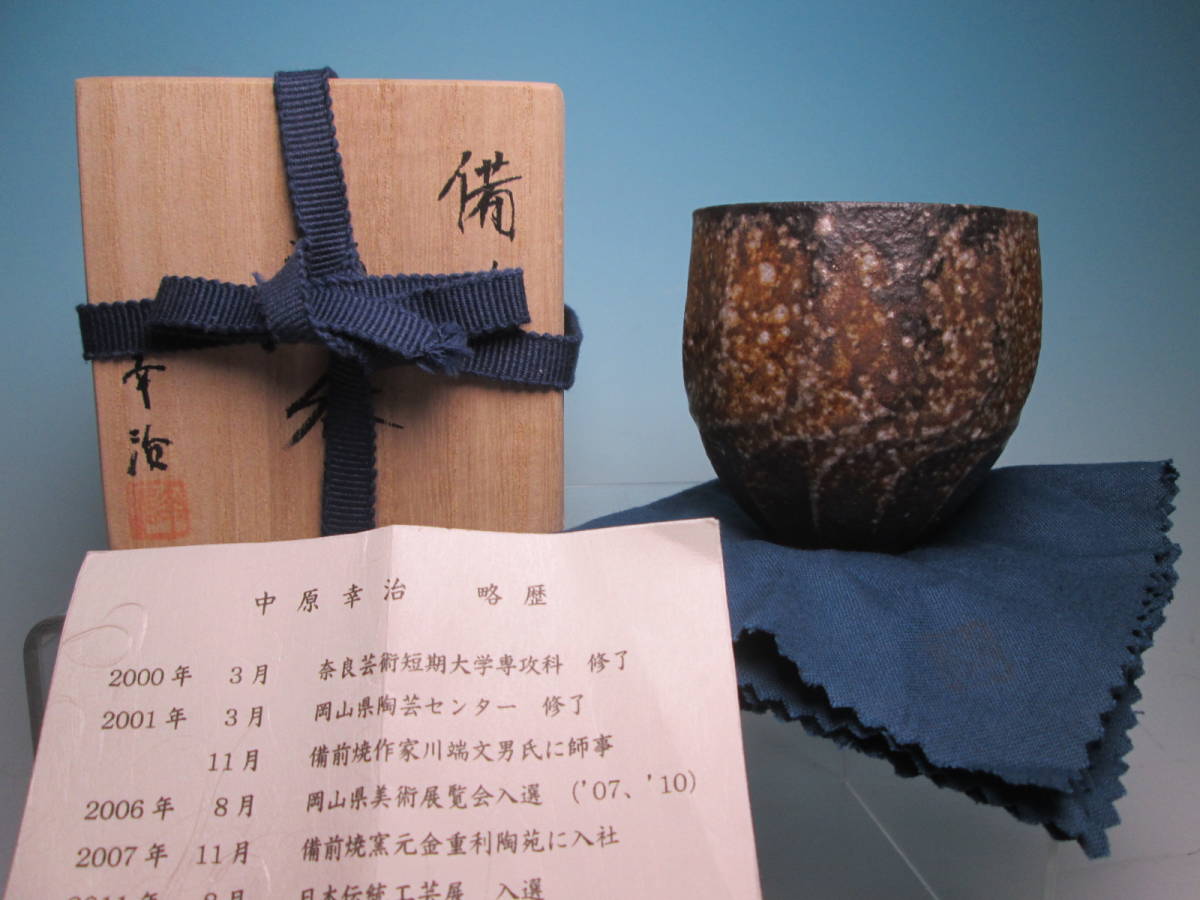 備
幸治
中原幸治 略歴
2000年 3月 奈良芸術短期大学専攻科 修了
2001年 3月 岡山県陶芸センター 修了
11月 備前焼作家川端文男氏に師事
2006年 8月 岡山県美術展覧会入選 ('07、'10)
2007年 11月 備前焼窯元金重利陶苑に入社
2011年 8月 日本伝統工芸展 入選